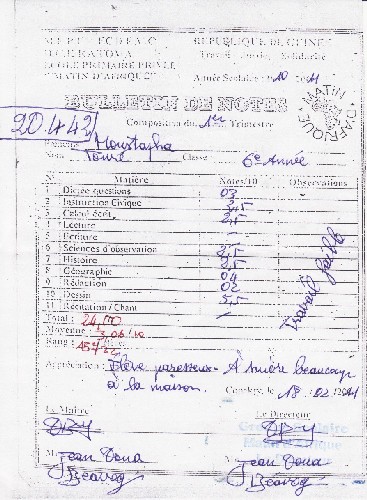 REPUBLIQUE DE GUINEE
Travail Justice Solidarité
ECOLE PRIMAIRE PRIVEE
"MATIN D'AFRIQUE"
Année Scolaire : 2010 2011
MATIN D'AFRIQUE
BULLETIN DE NOTES
Composition du 1er Trimestre
20.442
Prénoms Moustapha
Nom Touré Classe 6e Année
N° Matière Notes/10 Observations
1 Dictée questions 03
2 Instruction Civique 3,5
3 Calcul écrit 2,5
4 Lecture
5 Ecriture
6 Sciences d'observation 2,5
7 Histoire 2,5
8 Géographie 04
9 Rédaction 02
10 Dessin 5,5
11 Récitation / Chant
Travail faible
Total :
Moyenne :
Rang :
Appréciation : Elève paresseux - A suivre beaucoup
à la maison.
Conakry, le 18 02 2011
Le Maître Le Directeur
Jean Doua Jean Doua
Beavogui Beavogui